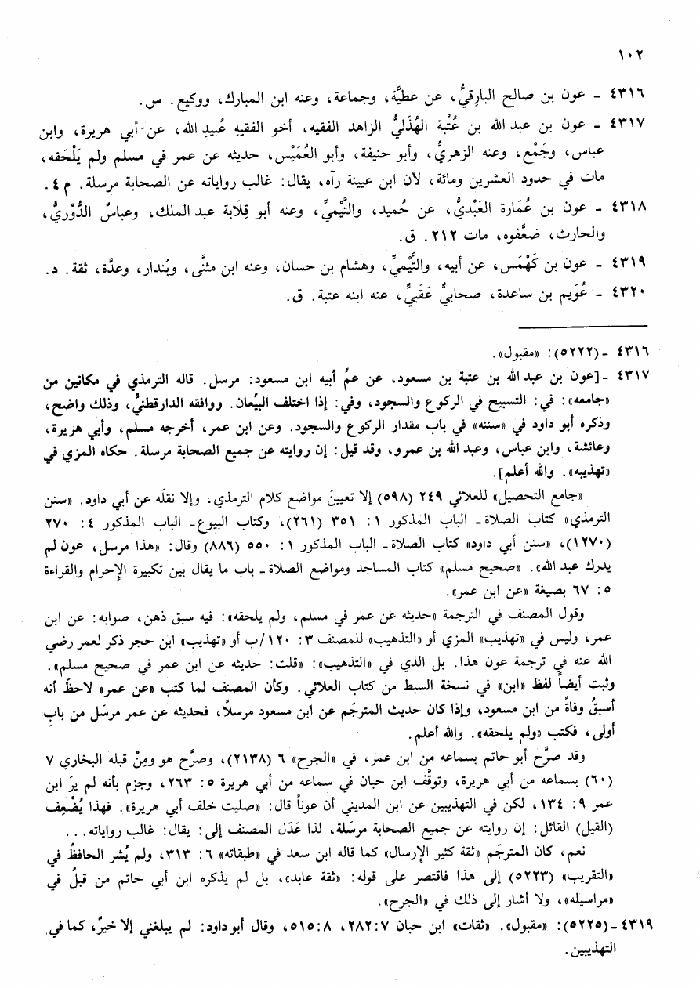 ١٠٢
٤٣١٦ - عون بن صالح البارقيُّ، عن عطيَّة، وجماعة، وعنه ابن المبارك، ووكيع. س.
٤٣١٧ - عون بن عبد الله بن عُتْبة الهُذَليُّ الزاهد الفقيه، أخو الفقيه عُبيدِ الله، عن أبي هريرة، وابن
عباس، وجَمْع، وعنه الزهريُّ، وأبو حنيفة، وأبو العُمَيْس، حديثه عن عمر في مسلم ولم يَلْحَقه،
مات في حدود العشرين ومائة، لأن ابن عيينة رآه، يقال: غالب رواياته عن الصحابة مرسلة. م ٤.
٤٣١٨ - عون بن عُمَارة العَبْديُّ، عن حُميد، والتَّيْميِّ، وعنه أبو قِلابة عبد الملك، وعباسٌ الدُّوْريُّ،
والحارث، ضعَّفوه، مات ٢١٢. ق.
٤٣١٩ - عون بن كَهْمَس، عن أبيه، والتَّيْميِّ، وهشام بن حسان، وعنه ابن مثنَّى، وبُندار، وعدَّة، ثقة. د.
٤٣٢٠ - عُوَيم بن ساعدة، صحابيٌّ عَقَبيٌّ، عنه ابنه عتبة. ق.
٤٣١٦ - (٥٢٢٢): «مقبول».
٤٣١٧ - [عون بن عبد الله بن عتبة بن مسعود، عن عمُ أبيه ابن مسعود: مرسل. قاله الترمذي في مكانين من
«جامعه»: في: التسبيح في الركوع والسجود، وفي: إذا اختلف البيِّعان. ووافقه الدارقطنيُّ، وذلك واضح،
وذكره أبو داود في «سننه» في باب مقدار الركوع والسجود. وعن ابن عمر، أخرجه مسلم، وأبي هريرة،
وعائشة، وابن عباس، وعبد الله بن عمرو، وقد قيل: إن روايته عن جميع الصحابة مرسلة. حكاه المزي في
«تهذيبه». والله أعلم].
«جامع التحصيل» للعلائي ٢٤٩ (٥٩٨) إلا تعيينَ مواضع كلام الترمذي. وإلا نقلَه عن أبي داود. «سنن
الترمذي» كتاب الصلاة - الباب المذكور ١: ٣٥١ (٢٦١)، وكتاب البيوع - الباب المذكور ٤: ٢٧٠
(١٢٧٠)، «سنن أبي داود» كتاب الصلاة - الباب المذكور ١: ٥٥٠ (٨٨٦) وقال: «هذا مرسل، عون لم
يدرك عبد الله». «صحيح مسلم» كتاب المساجد ومواضع الصلاة - باب ما يقال بين تكبيرة الإحرام والقراءة
٥: ٦٧ بصيغة «عن ابن عمر».
وقول المصنف في الترجمة «حديثه عن عمر في مسلم، ولم يلحقه»: فيه سبق ذهن، صوابه: عن ابن
عمر، وليس في «تهذيب» المزي أو «التذهيب» للمصنف ٣: ١٢٠/ب أو «تهذيب» ابن حجر ذكر لعمر رضي
الله عنه في ترجمة عون هذا. بل الذي في «التذهيب»: «قلت: حديثه عن ابن عمر في صحيح مسلم».
وثبت أيضاً لفظ «ابن» في نسخة السبط من كتاب العلائي. وكأن المصنف لما كتب «عن عمر» لاحظَ أنه
أسبقُ وفاةً من ابن مسعود، وإذا كان حديث المترجَم عن ابن مسعود مرسلًا، فحديثه عن عمر مرسَل من بابِ
أولى، فكتب «ولم يلحقه». والله أعلم.
وقد صرَّح أبو حاتم بسماعه من ابن عمر، في «الجرح» ٦ (٢١٣٨)، وصرَّح هو ومِنْ قبله البخاري ٧
(٦٠) بسماعه من أبي هريرة، وتوقَّف ابن حبان في سماعه من أبي هريرة ٥: ٢٦٣، وجزم بأنه لم يرَ ابن
عمر ٩: ١٣٤، لكن في التهذيبين عن ابن المديني أن عوناً قال: «صليت خلف أبي هريرة». فهذا يُضْعِف
(القيل) القائل: إن روايته عن جميع الصحابة مرسَلة، لذا عَدَل المصنف إلى: يقال: غالب رواياته...
نعم، كان المترجَم «ثقة كثير الإرسال» كما قاله ابن سعد في «طبقاته» ٦: ٣١٣، ولم يُشر الحافظُ في
«التقريب» (٥٢٢٣) إلى هذا فاقتصر على قوله: «ثقة عابد»، بل لم يذكره ابن أبي حاتم من قبلُ في
«مراسيله»، ولا أشار إلى ذلك في «الجرح».
٤٣١٩ - (٥٢٢٥): «مقبول». «ثقات» ابن حبان ٢٨٢:٧، ٥١٥:٨، وقال أبو داود: لم يبلغني إلا خيرٌ، كما في
التهذيبين.